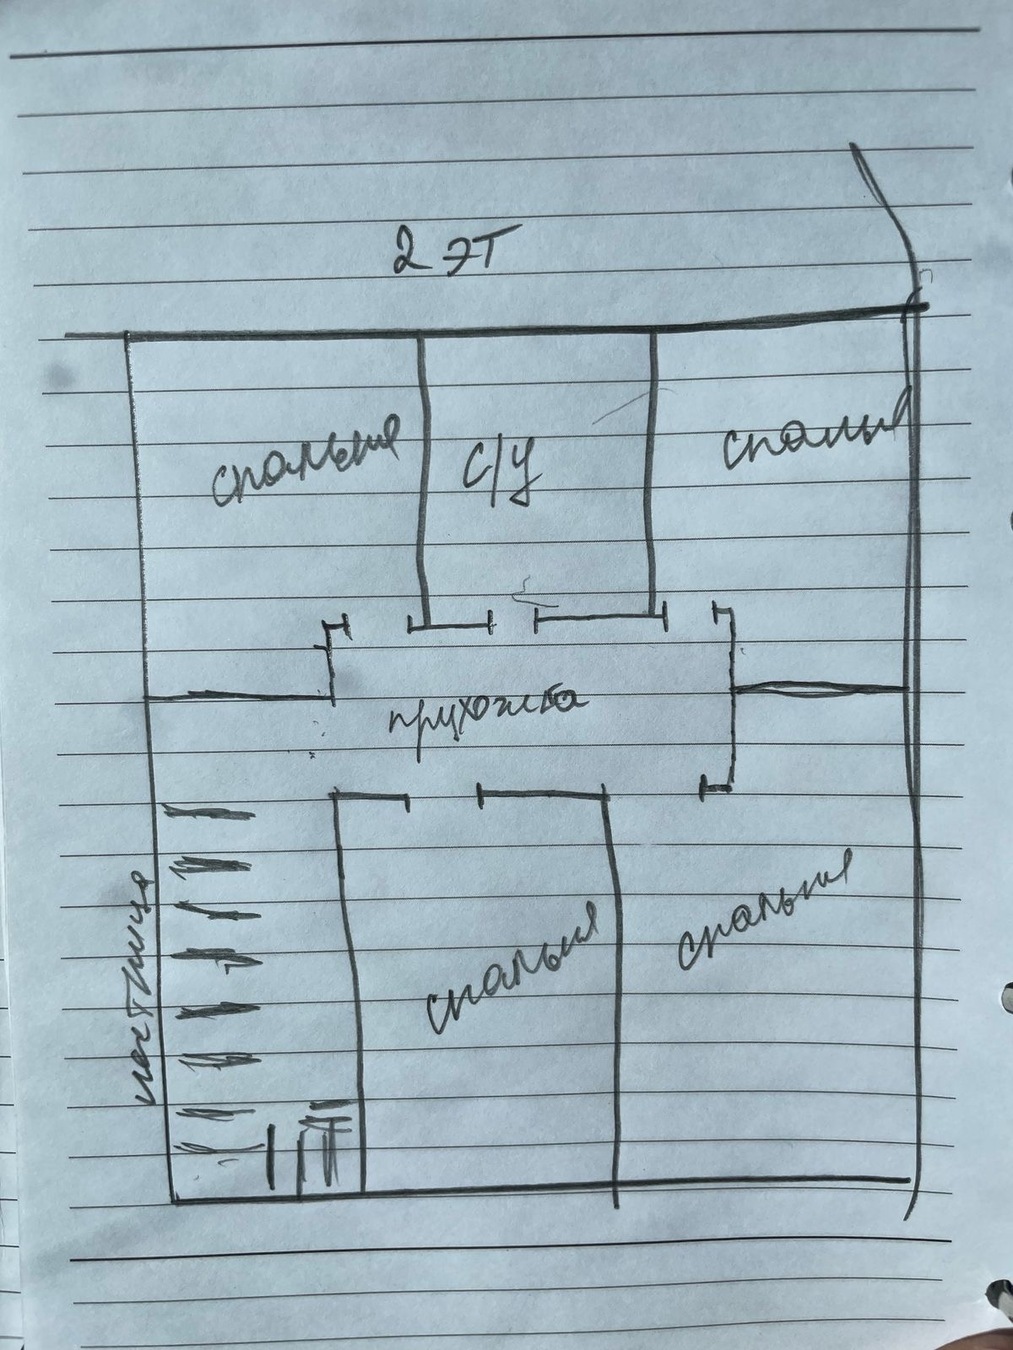 2 ЭТ
спальня
с/у
спальня
прихожка
лестница
спальня
спальня